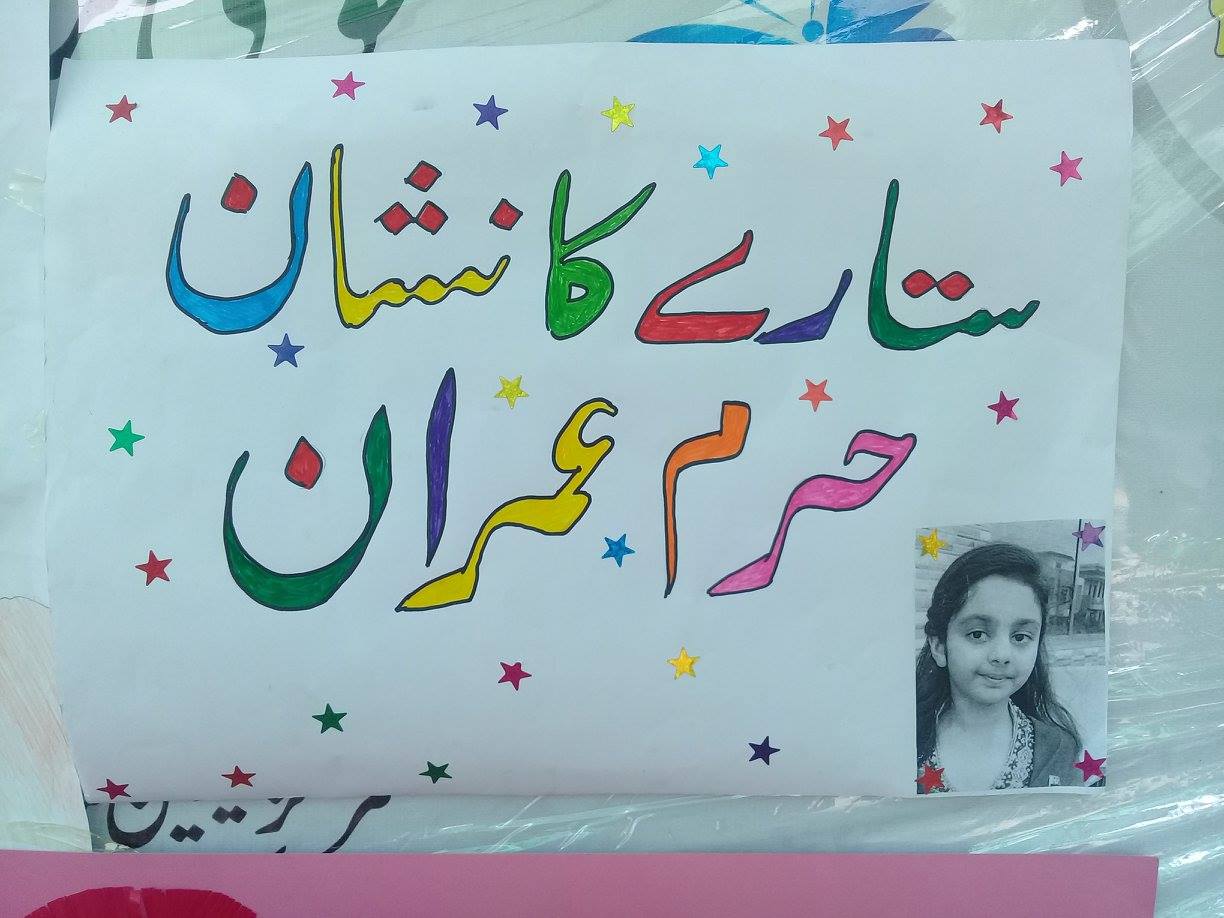 ستارے کا نشان
حرم عمران